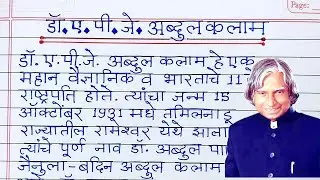 Page:
डॉ. ए. पी. जे. अब्दुल कलाम
डॉ. ए. पी. जे. अब्दुल कलाम हे एक
महान वैज्ञानिक व भारताचे 11
राष्ट्रपति होते. त्यांचा जन्म 15
ऑक्टोबर 1931 मधे तमिलनाडू
राज्यातील रामेश्वर येथे झाला
त्यांचे पूर्ण नाव डॉ. अब्दुल पा
जैनुला-बदिन अब्दुल कलाम